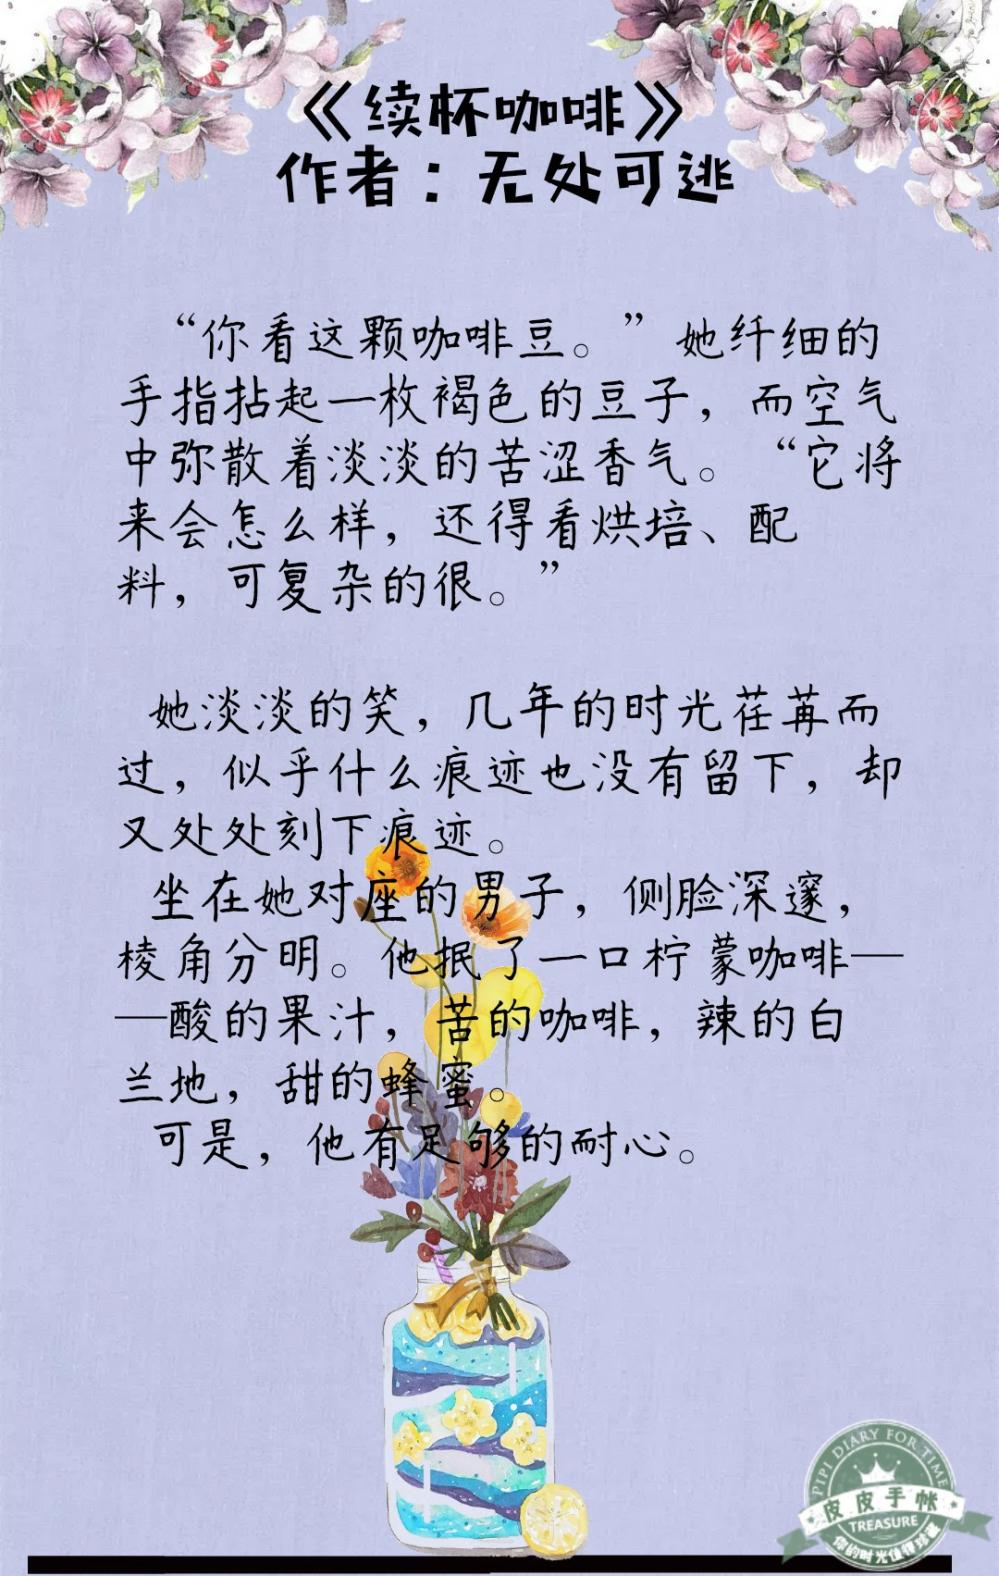 《续杯咖啡》
作者：无处可逃
“你看这颗咖啡豆。”她纤细的
手指拈起一枚褐色的豆子，而空气
中弥散着淡淡的苦涩香气。“它将
来会怎么样，还得看烘培、配
料，可复杂的很。”
她淡淡的笑，几年的时光荏苒而
过，似乎什么痕迹也没有留下，却
又处处刻下痕迹。
坐在她对座的男子，侧脸深邃，
棱角分明。他抿了一口柠蒙咖啡—
—酸的果汁，苦的咖啡，辣的白
兰地，甜的蜂蜜。
可是，他有足够的耐心。
PIPI DIARY FOR TIME
皮皮手帐
TREASURE
你的时光值得珍藏